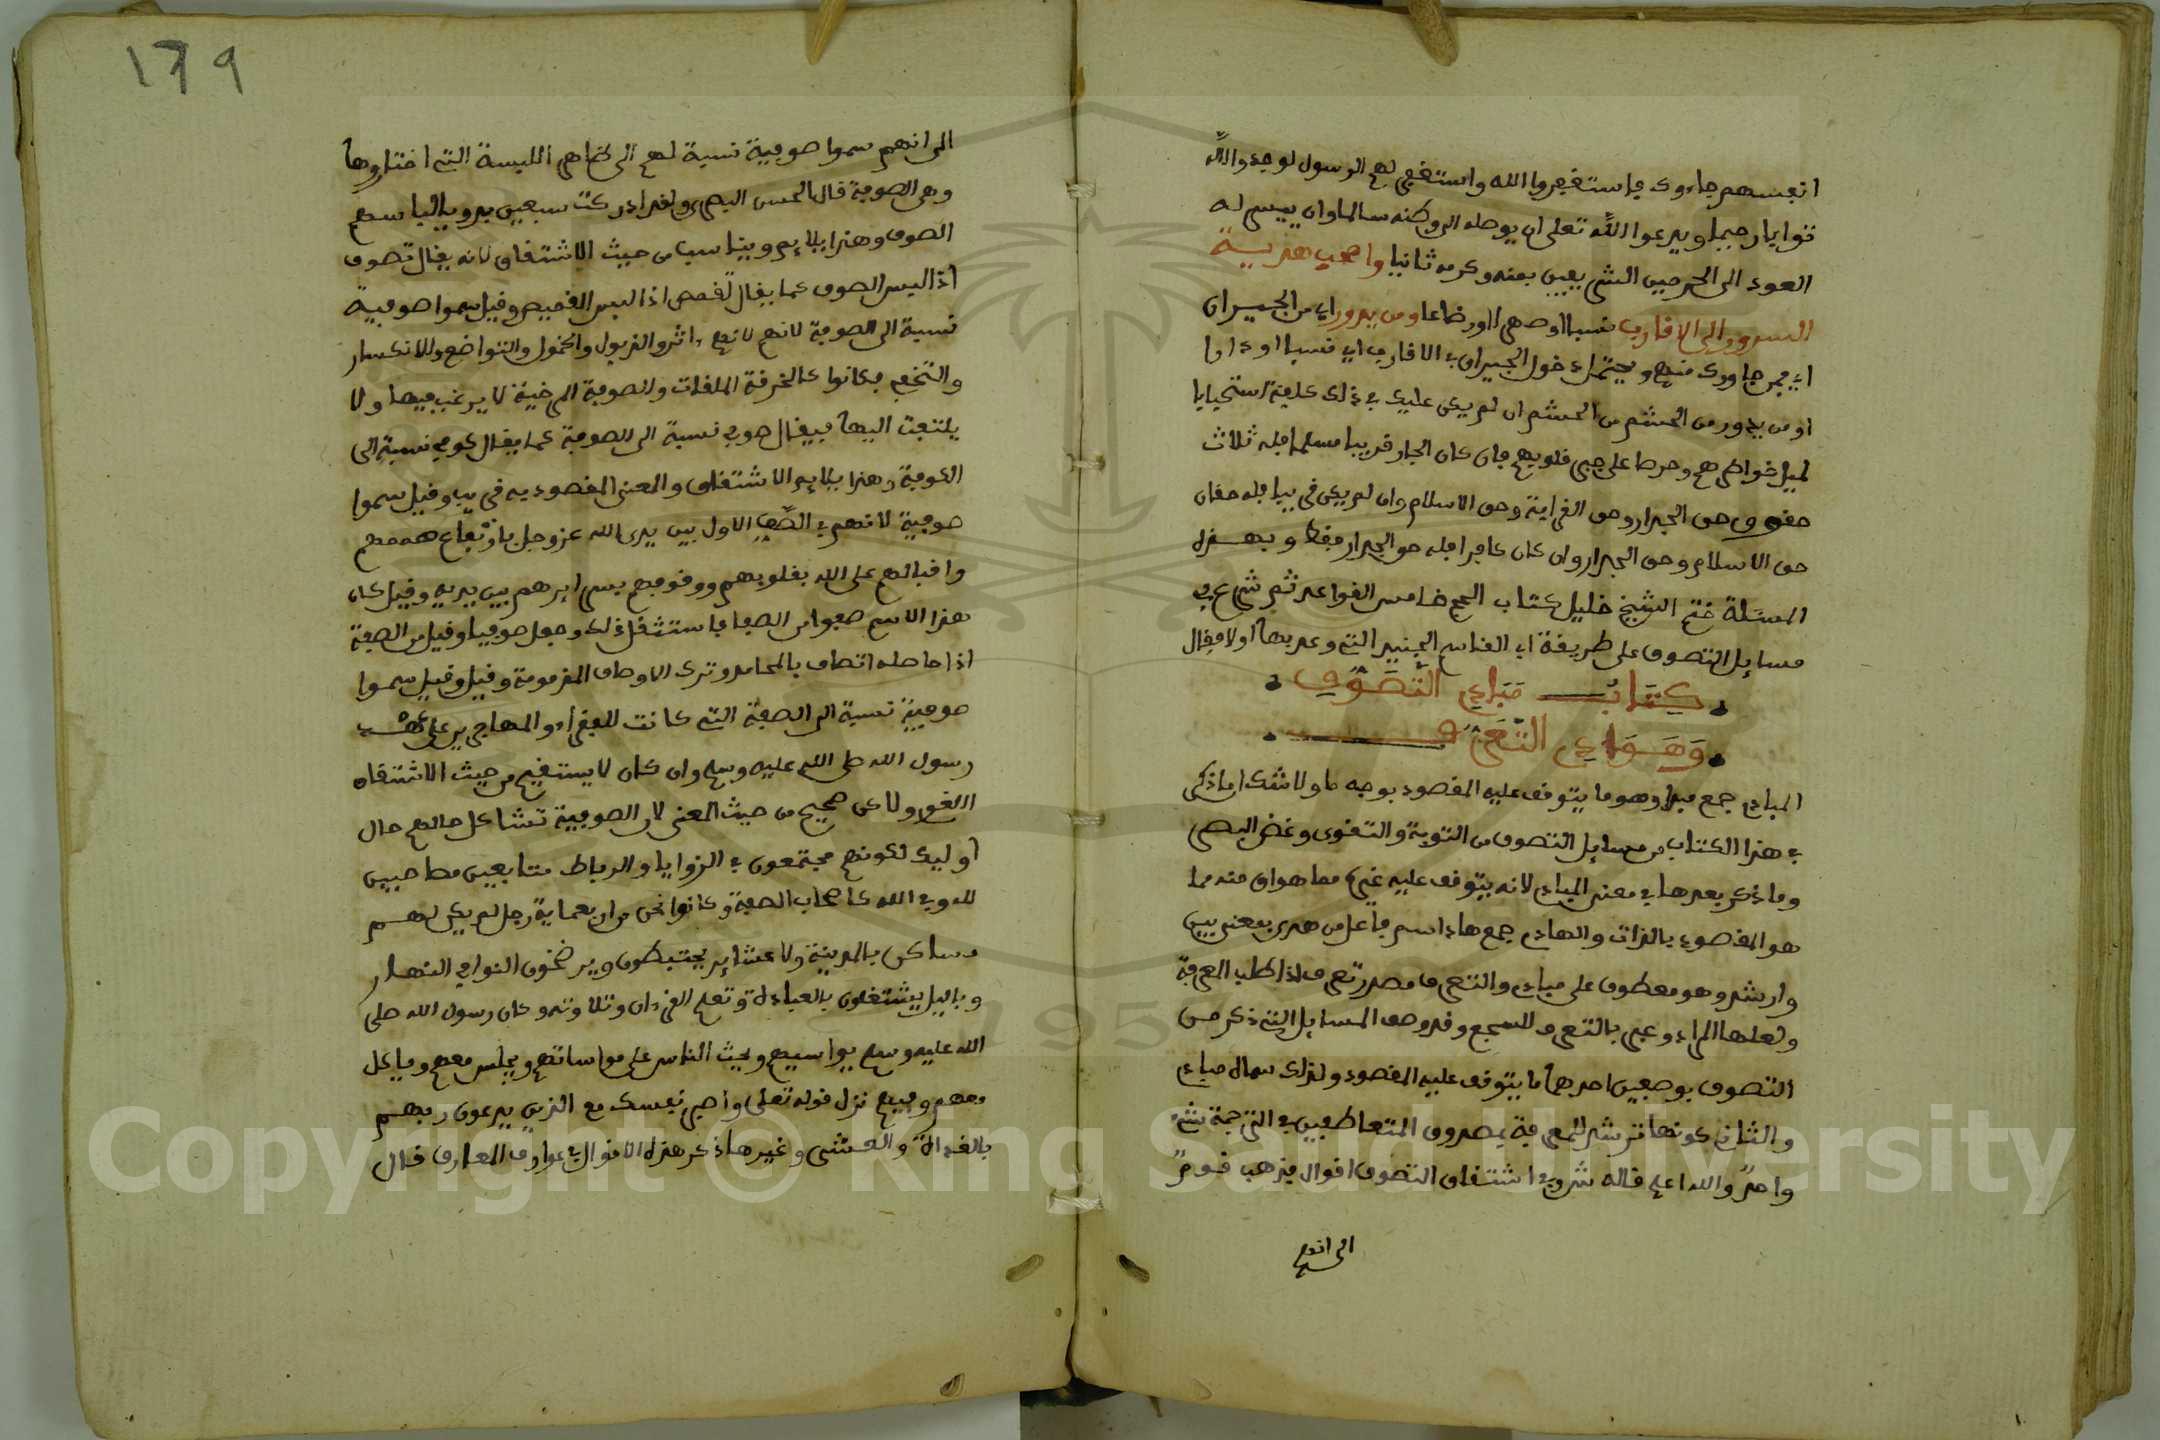 انفسهم جاءوك فاستغفروا الله واستغفر لهم الرسول لوجدوا الله
توابا رحيما ويدعوا الله تعلى ان يوصله الى وطنه سالما وان ييسر له
العود الى الحرمين الشريفين بمنه وكرمه ثانيا واصحب هدية
السرور الى الاقارب نسبا او صهرا او رضاعا ومن يدور اي من الجيران
اي ممن جاورك منهم ويحتمل دخول الجيران في الاقارب اي نسبا او دارا
او من يدور من الحشم من الحشم ان لم يكن عليك في ذلك كلفة استحبابا
لميل خواطرهم وحرصا على جبر قلوبهم فان كان الجار قريبا مسلما فله ثلاث
حقوق حق الجوار وحق القرابة وحق الاسلام وان لم يكن قريبا فله حقان
حق الاسلام وحق الجوار وان كان كافرا فله حق الجوار فقط وبهذه
المسئلة ختم الشيخ خليل كتاب الحج خامس القواعد ثم شرع في
مسايل التصوف على طريقة ابي القاسم الجنيد التي وعد بها اولا فقال
كتاب مبادي التصوف
وهوادي التعرف
المبادي جمع مبدا وهو ما يتوقف عليه المقصود بوجه ما ولا شك ان ما ذكر
في هذا الكتاب من مسايل التصوف من التوبة والتقوى وغض البصر
وما ذكر بعدها في معنى المبادي لانه يتوقف عليه غيره مما هو ات منه مما
هو المقصود بالذات والهادي جمع هاد اسم فاعل من هدى بمعنى بين
وارشد وهو معطوف على مبادي والتعرف مصدر تعرف اذا طلب المعرفة
ولعلها المراد وعبر بالتعرف للسجع وقد وصف المسايل التي ذكر من
التصوف بوصفين احدهما ما يتوقف عليه المقصود ولذلك سماه مبادي
والثاني كونها ترشد للمعرفة فمصدوق المتعاطفين في الترجمة شيء
واحد والله اعلم قاله ش وفي اشتقاق التصوف اقوال فذهب قوم
الى انهم
١٦٩
الى انهم سموا صوفية نسبة لهم الى ظاهر اللبسة التي اختاروها
وهي الصوفة قال الحسن البصري ولقد ادركت سبعين بدريا لباسهم
الصوف وهذا يلايم ويناسب من حيث الاشتقاق لانه يقال تصوف
اذا لبس الصوف كما يقال تقمص اذا لبس القميص وقيل سموا صوفية
نسبة الى الصوفة لانهم لانهم ءاثروا الذبول والخمول والتواضع والانكسار
والتخفي فكانوا كالخرقة الملقات والصوفة المرمية لا يرغب فيها ولا
يلتفت اليها فيقال صوفي نسبة الى الصوفة كما يقال كوفي نسبة الى
الكوفة وهذا يلايم الاشتقاق والمعنى المقصود به قريب وقيل سموا
صوفية لانهم في الصف الاول بين يدي الله عز وجل بارتفاع هممهم
واقبالهم على الله بقلوبهم ووقوفهم بسرايرهم بين يديه وقيل كان
هذا الاسم صفوا من الصفا فاستثقل ذلك وجعل صوفيا وقيل من الصفة
اذا حاصله اتصاف بالمحامد وترك الاوصاف المذمومة وقيل وقيل سموا
صوفية نسبة الى الصفة التي كانت للفقراء والمهاجرين على عهد
رسول الله صلى الله عليه وسلم وان كان لا يستقيم من حيث الاشتقاق
اللغوي ولاكن صحيح من حيث المعنى لان الصوفية تشاكل حالهم حال
اوليك لكونهم مجتمعون في الزوايا والرباط متابعين مصاحبين
لله وفي الله كاصحاب الصفة وكانوا نحو من اربعماية رجل لم يكن لهم
مساكن بالمدينة ولا عشاير يحتطبون ويرضخون النوا في النهار
وباليل يشتغلون بالعبادة وتعلم القرءان وتلاوته وكان رسول الله صلى
الله عليه وسلم يواسيهم ويحث الناس على مواساتهم ويجلس معهم وياكل
معهم وفيهم نزل قوله تعلى واصبر نفسك مع الذين يدعون ربهم
بالغداة والعشي وغيرها ذكر هذه الاقوال في عوارف المعارف قال
Copyright © King Saud University
195